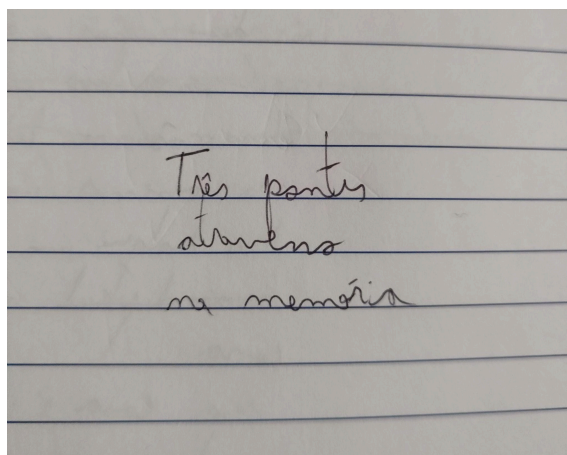 Três pontes
atravesso
na memória